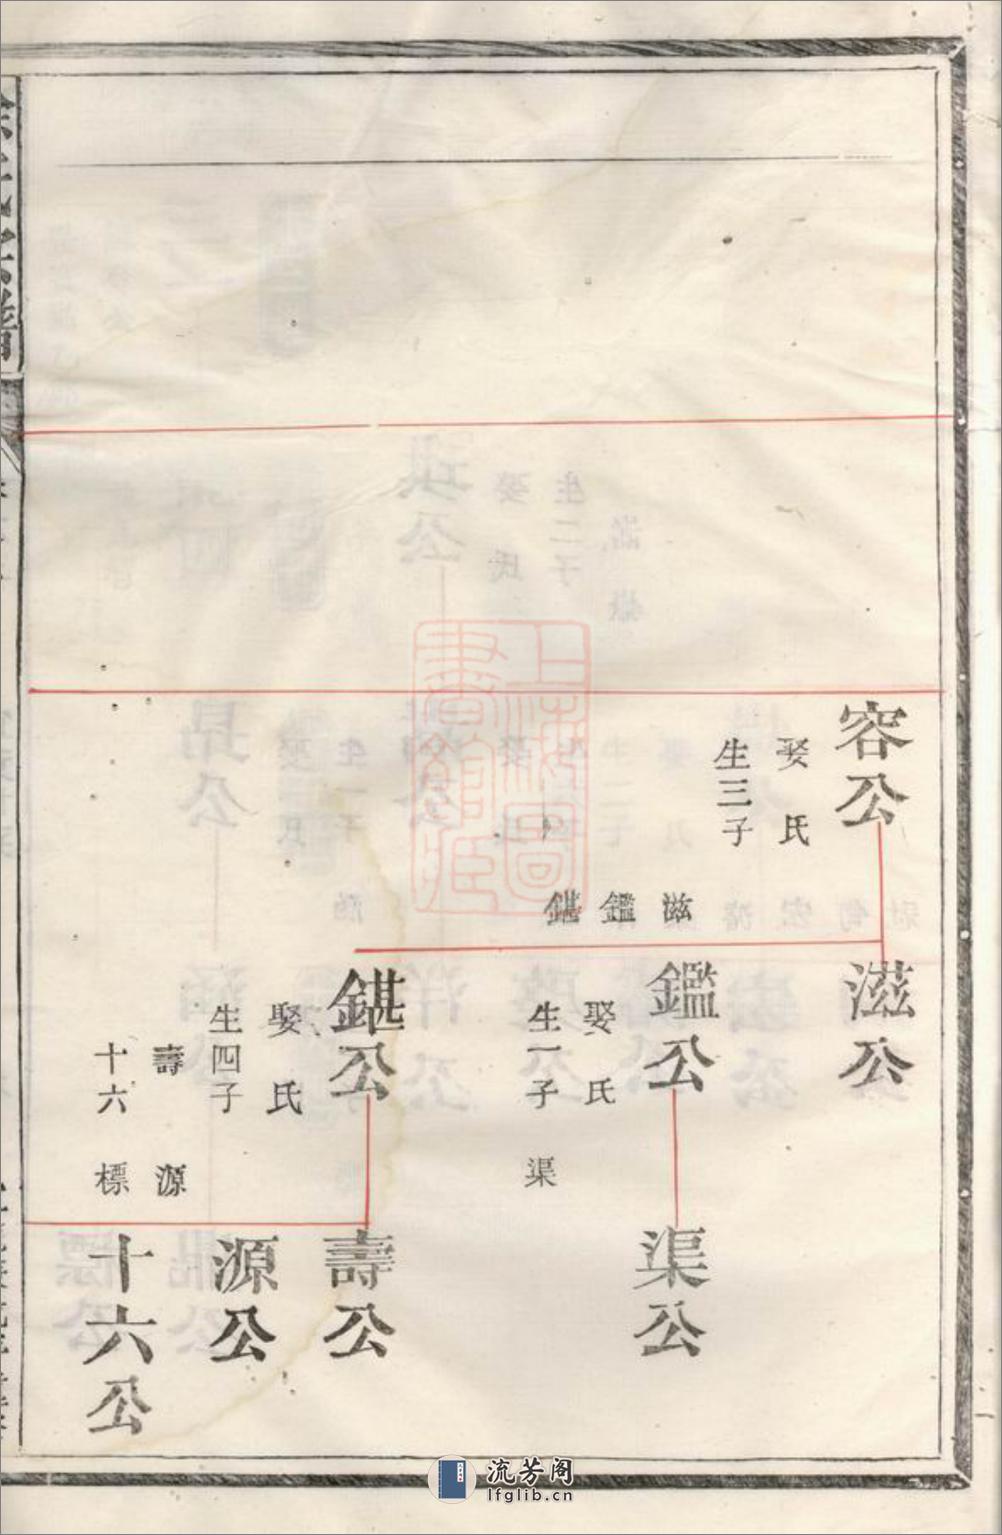 容公
娶氏
生三子
滋鑑鍖
滋公
鑑公
娶氏
生一子
渠
鍖公
娶氏
生四子
壽源
十六標
渠公
壽公
源公
十六公
上海圖書館藏
流芳阁
lfglib.cn